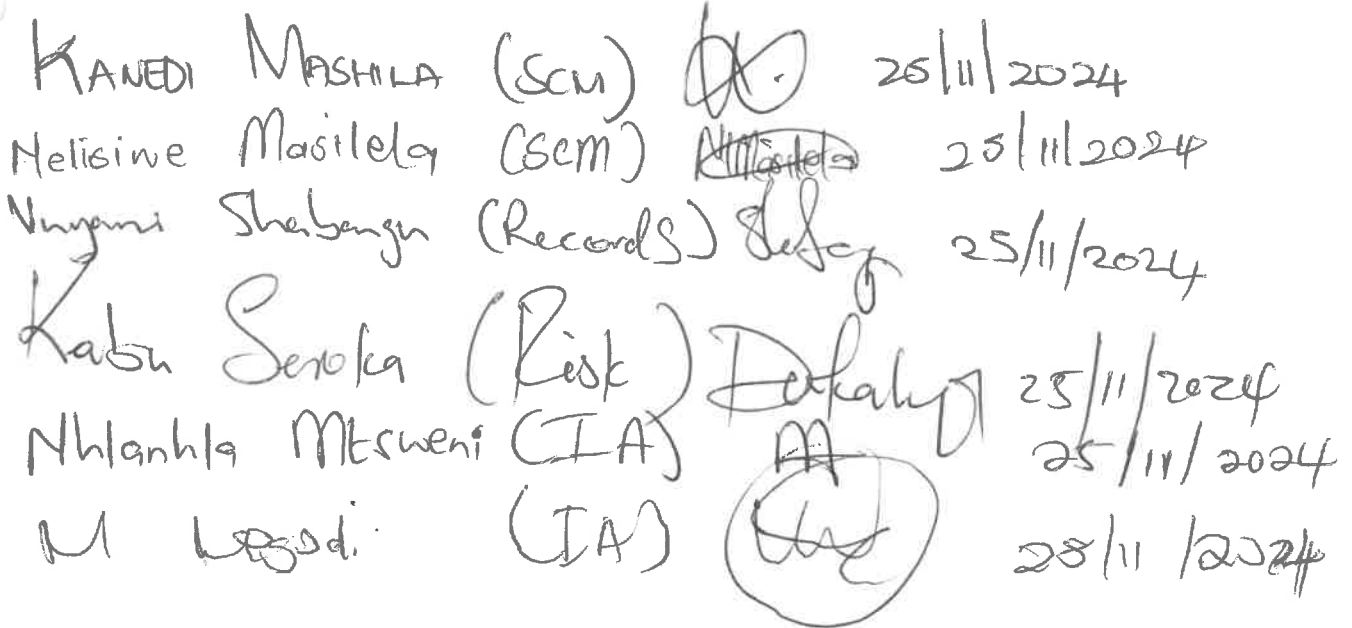 KANEDI MASHILA (SCM) 25/11/2024
Nelisiwe Masilela (SCM) NMasilela 25/11/2024
Vuyani Shabangu (Records) 25/11/2024
Kabu Seroka (Risk) 25/11/2024
Nhlanhla Mtsweni (IA) 25/11/2024
M (IA) 25/11/2024